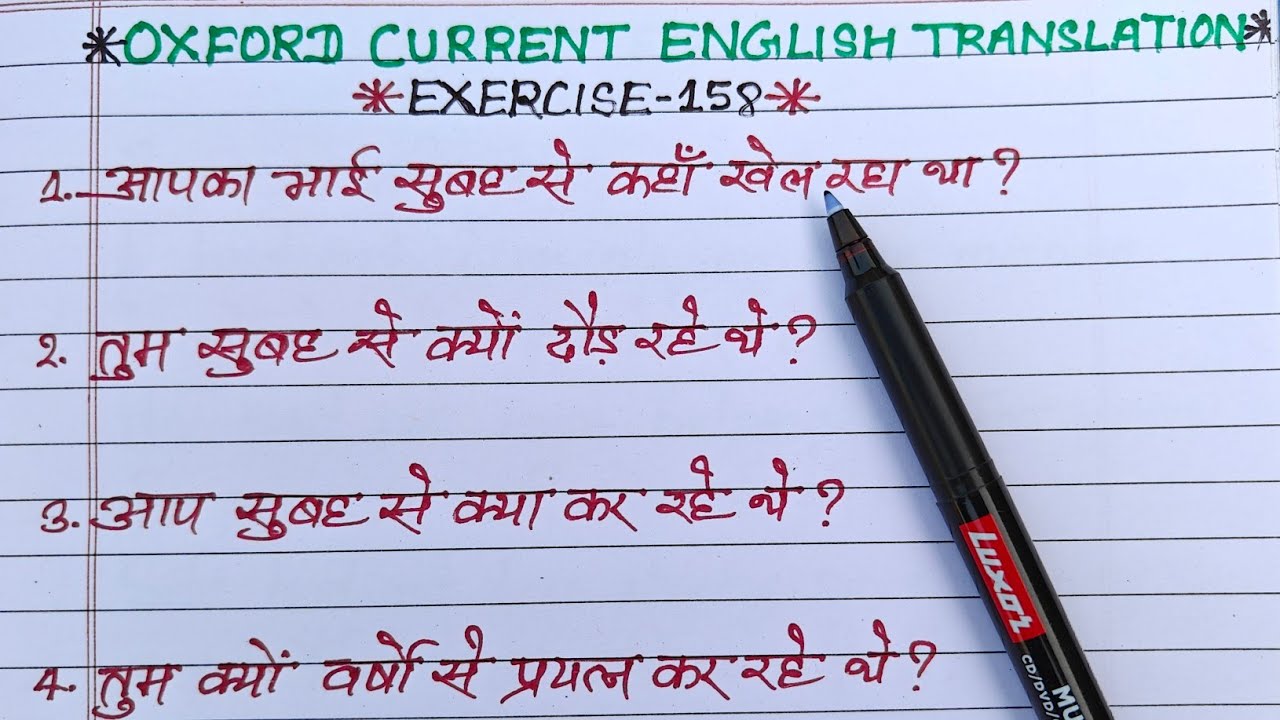 *OXFORD CURRENT ENGLISH TRANSLATION*
*EXERCISE-158*
1. आपका भाई सुबह से कहाँ खेल रहा था?
2. तुम सुबह से क्यों दौड़ रहे थे?
3. आप सुबह से क्या कर रहे थे?
4. तुम क्यों वर्षों से प्रयत्न कर रहे थे?
Luxor
CD/DVD/
MU